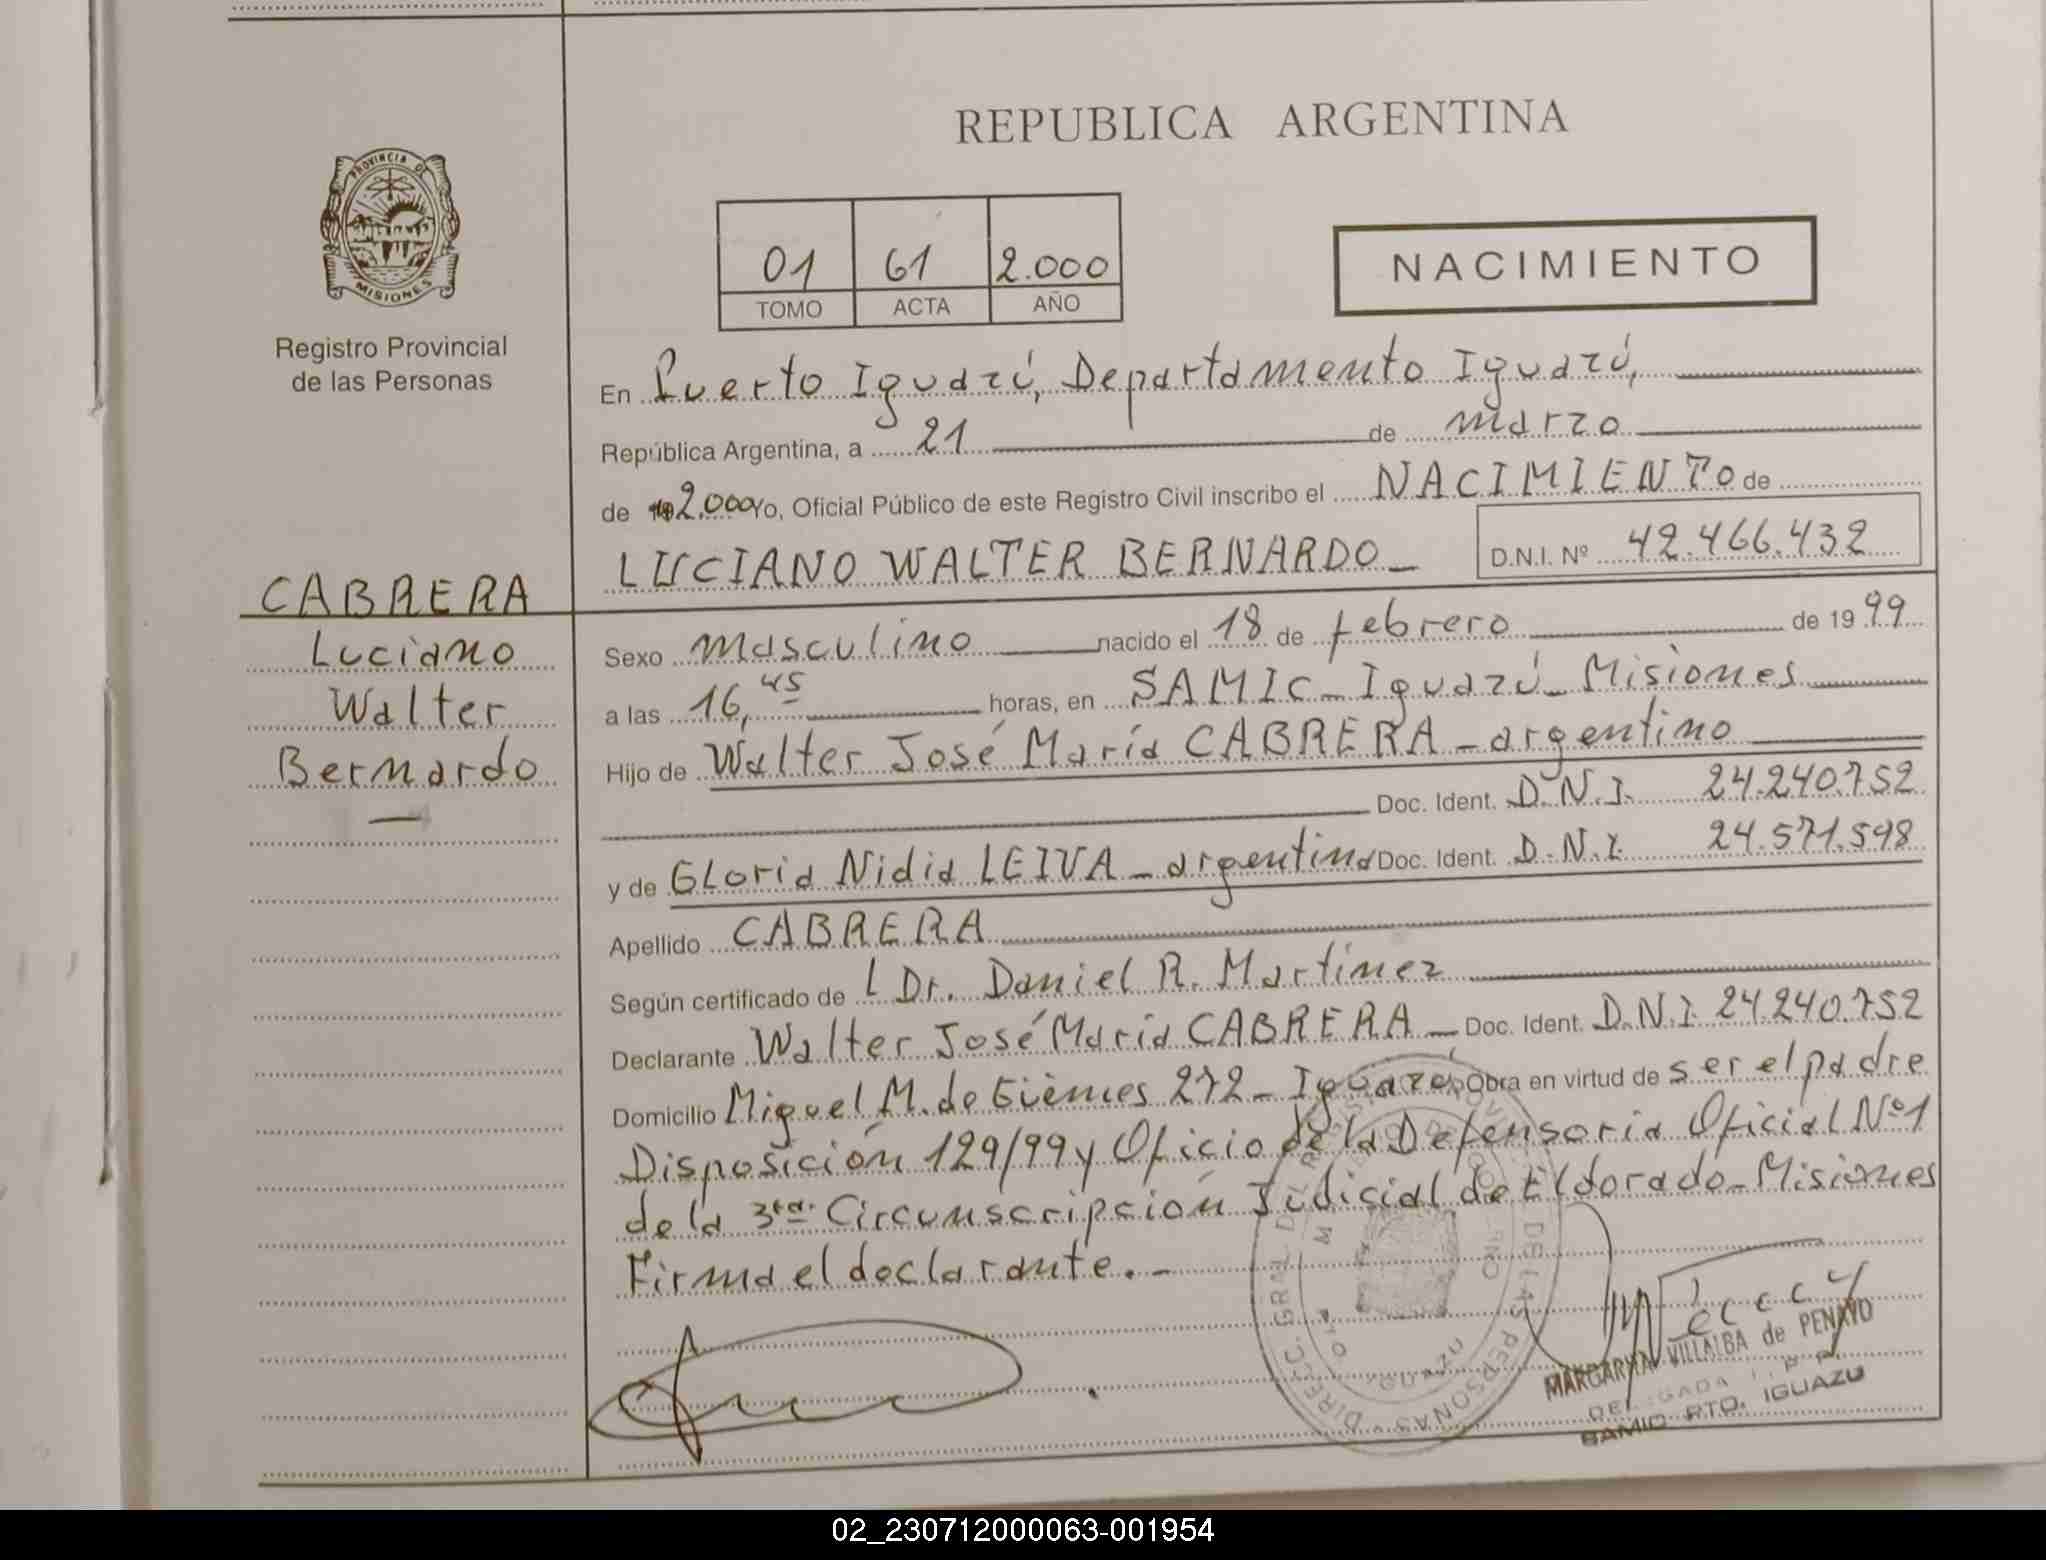 REPUBLICA ARGENTINA
PROVINCIA DE
MISIONES
Registro Provincial
de las Personas
01 61 2.000
TOMO ACTA AÑO
NACIMIENTO
En Puerto Iguazú, Departamento Iguazú,
República Argentina, a 21 de marzo
de 2.000 Yo, Oficial Público de este Registro Civil inscribo el NACIMIENTO de
LUCIANO WALTER BERNARDO D.N.I. Nº 42.466.432
CABRERA
Luciano
Walter
Bernardo
Sexo masculino nacido el 18 de febrero de 1999
a las 16,45 horas, en SAMIC - Iguazú - Misiones
Hijo de Walter José María CABRERA - argentino
Doc. Ident. D.N.I. 24.240.752
y de Gloria Nidia LEIVA - argentina Doc. Ident. D.N.I. 24.571.598
Apellido CABRERA
Según certificado de Dr. Daniel R. Martinez
Declarante Walter José María CABRERA - Doc. Ident. D.N.I. 24.240.752
Domicilio Miguel M. de Güemes 272 - Iguazú Obra en virtud de ser el padre
Disposición 129/99 y Oficio de la Defensoria Oficial Nº 1
de la 3ra. Circunscripción Judicial de Eldorado - Misiones
Firma el declarante. -
DIRECC. GRAL DE LAS PERSONAS
IGUAZU
MARGARITA VILLALBA de PENAYO
DELEGADA
SAMIC PTO. IGUAZU
02_230712000063-001954